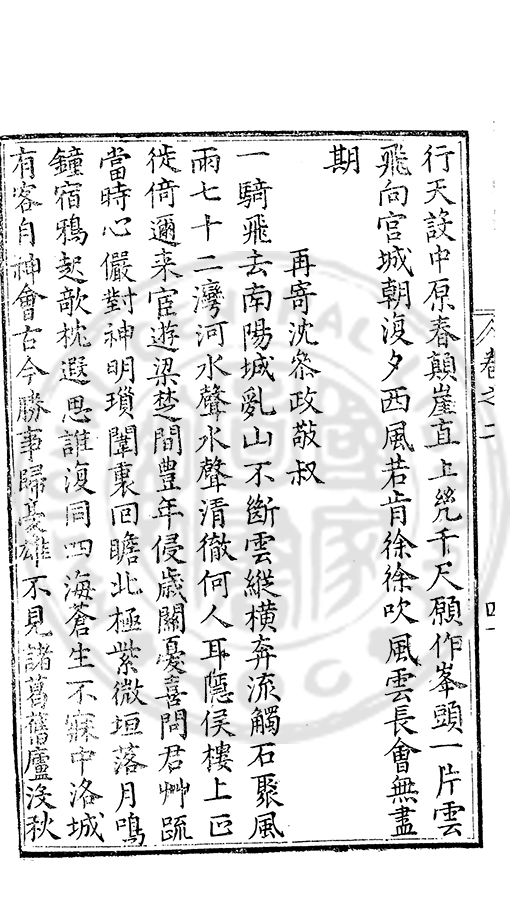 行天設中原春顛崖直上幾千尺願作峯頭一片雲
飛向官城朝復夕西風若肯徐徐吹風雲長會無盡
期
再寄沈叅政敬叔
一騎飛去南陽城亂山不斷雲縱橫奔流觸石聚風
雨七十二灣河水聲水聲清徹何人耳隱侯樓上正
徙倚邇来宦遊梁楚間豊年侵歲關憂喜問君艸䟽
當時心儼對神明瑣闈裏回瞻北極紫微垣落月鳴
鐘宿鴉起敧枕遐思誰復同四海蒼生不寐中洛城
有客自神會古今勝事歸憂雄不見諸葛舊廬没秋
卷之二
四